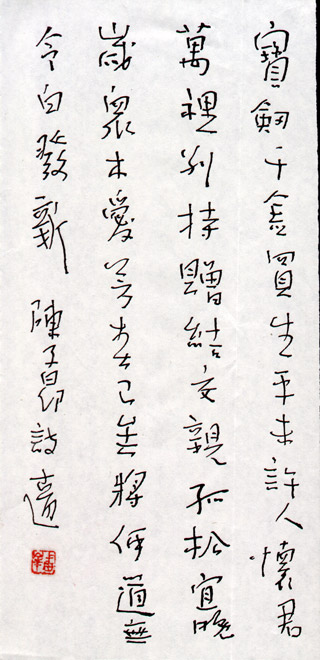 寶劍千金買生平未許人懷君
萬裡別持贈結交親孤松宜晚
歲眾木愛芳春已矣將何道無
令白發新 陳子昂詩